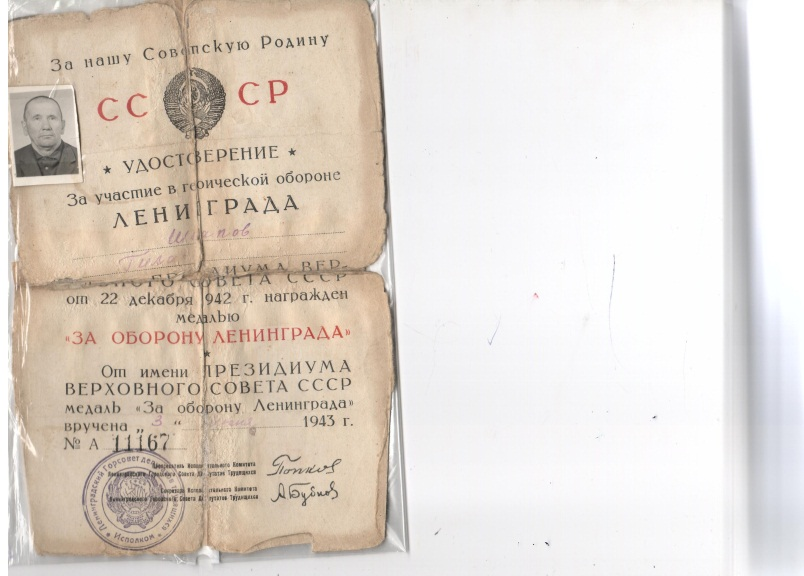 За нашу Советскую Родину
СССР
★ УДОСТОВЕРЕНИЕ ★
За участие в героической обороне
ЛЕНИНГРАДА
ДИУМА ВЕР-
НОГО СОВЕТА СССР
от 22 декабря 942 г. награжден
медалью
«ЗА ОБОРОНУ ЛЕНИНГРАДА»
От имени ПРЕЗИДИУМА
ВЕРХОВНОГО СОВЕТА СССР
медаль «За оборону Ленинграда»
вручена „3“ 1943 г.
№ А 11167
Председатель Исполнительного Комитета
Ленинградского Городского Совета Депутатов Трудящихся
Попков
Секретарь Исполнительного Комитета
Ленинградского Городского Совета Депутатов Трудящихся
АБубнов
Ленинградский Горсовет депутатов трудящихся
★ Исполком ★